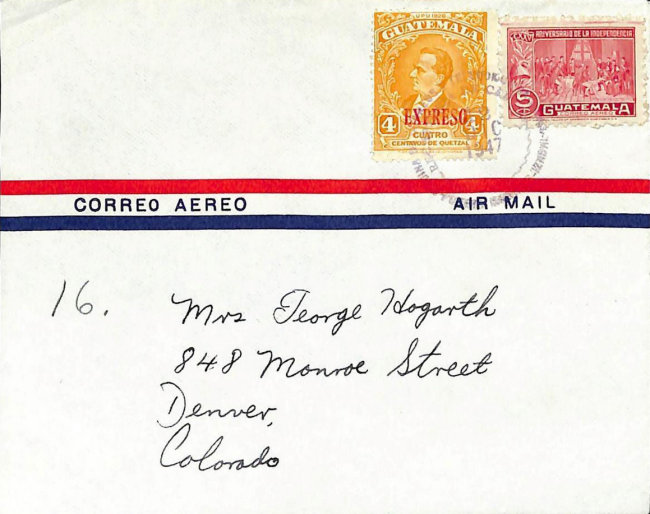 UPU 1926
GUATEMALA
EXPRESO
4 4
CUATRO
CENTAVOS DE QUETZAL
ANIVERSARIO DE LA INDEPENDENCIA
5
GUATEMALA
CORREO AEREO
1947
CORREO AEREO AIR MAIL
16.
Mrs George Hogarth
848 Monroe Street
Denver,
Colorado